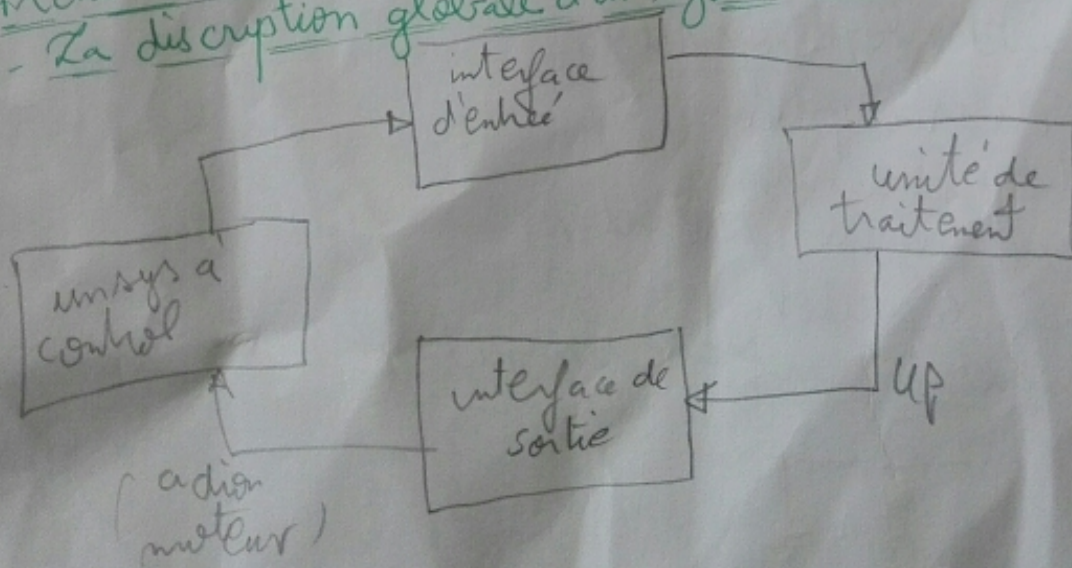 - La discription globale d'un
interface
d'entrée
unité de
traitement
un sys a
control
interface de
sortie
up
(action
moteur)